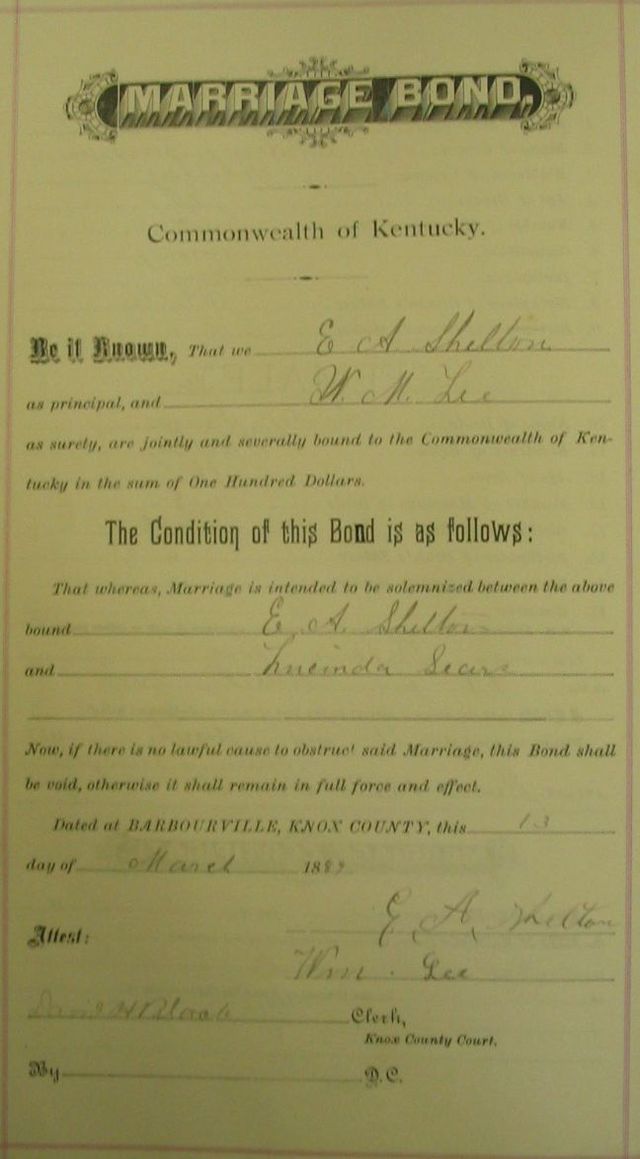 MARRIAGE BOND,
Commonwealth of Kentucky.
Be it Known, That we E A Shelton
as principal, and W. M. Lee
as surety, are jointly and severally bound to the Commonwealth of Ken-
tucky in the sum of One Hundred Dollars.
The Condition of this Bond is as follows:
That whereas, Marriage is intended to be solemnized between the above
bound E. A. Shelton
and Lucinda Sears
Now, if there is no lawful cause to obstruct said Marriage, this Bond shall
be void, otherwise it shall remain in full force and effect.
Dated at BARBOURVILLE, KNOX COUNTY, this 13
day of March 1889
E. A. Shelton
Attest:
Wm. Lee
Clerk,
Knox County Court.
By D.C.